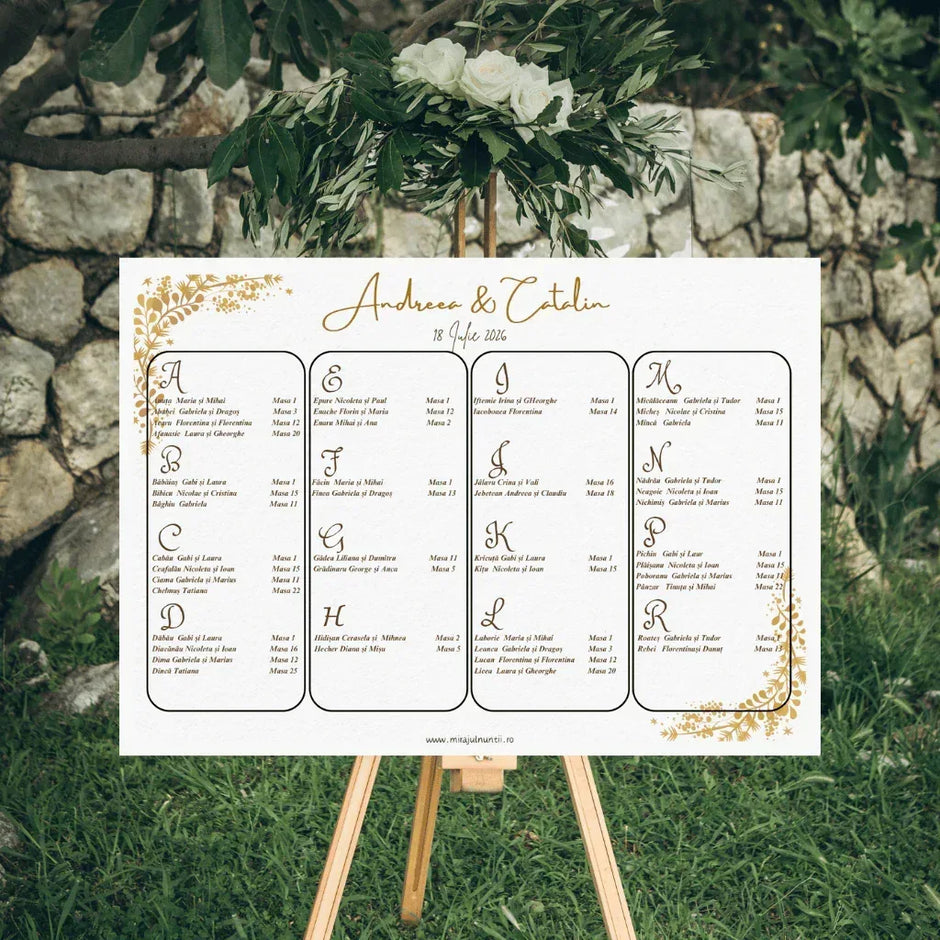 Andreea & Catalin
18 Iulie 2026
A
Maria și Mihai Masa 1
Gabriela și Dragoș Masa 3
Florentina și Florentina Masa 12
Afanasie Laura și Gheorghe Masa 20
B
Băbăiaș Gabi și Laura Masa 1
Bibicu Nicolae și Cristina Masa 15
Băghiu Gabriela Masa 11
C
Cabău Gabi și Laura Masa 1
Ceafalău Nicoleta și Ioan Masa 15
Ciama Gabriela și Marius Masa 11
Chelmuș Tatiana Masa 22
D
Dăbău Gabi și Laura Masa 1
Diacănău Nicoleta și Ioan Masa 16
Dima Gabriela și Marius Masa 12
Dincă Tatiana Masa 25
E
Epure Nicoleta și Paul Masa 1
Enache Florin și Maria Masa 12
Enaru Mihai și Ana Masa 2
F
Făciu Maria și Mihai Masa 1
Finea Gabriela și Dragoș Masa 13
G
Gâdea Liliana și Dumitru Masa 11
Grădinaru George și Anca Masa 5
H
Hidișan Cerasela și Mihnea Masa 2
Hecher Diana și Mișu Masa 5
I
Iftemie Irina și GHeorghe Masa 1
Iacoboaea Florentina Masa 14
J
Jălaru Crina și Vali Masa 16
Jebetean Andreea și Claudiu Masa 18
K
Kricuță Gabi și Laura Masa 1
Kițu Nicoleta și Ioan Masa 15
L
Laborie Maria și Mihai Masa 1
Leancu Gabriela și Dragoș Masa 3
Lucan Florentina și Florentina Masa 12
Licea Laura și Gheorghe Masa 20
M
Micălăceanu Gabriela și Tudor Masa 1
Micheș Nicolae și Cristina Masa 15
Mincă Gabriela Masa 11
N
Nădrău Gabriela și Tudor Masa 1
Neagoie Nicoleta și Ioan Masa 15
Nichimiș Gabriela și Marius Masa 11
P
Pichin Gabi și Laur Masa 1
Plăișanu Nicoleta și Ioan Masa 15
Poboranu Gabriela și Marius Masa 11
Pânzar Tinuța și Mihai Masa 22
R
Roateș Gabriela și Tudor Masa 1
Rebei Florentinași Danuț Masa 13
www.mirajulnuntii.ro